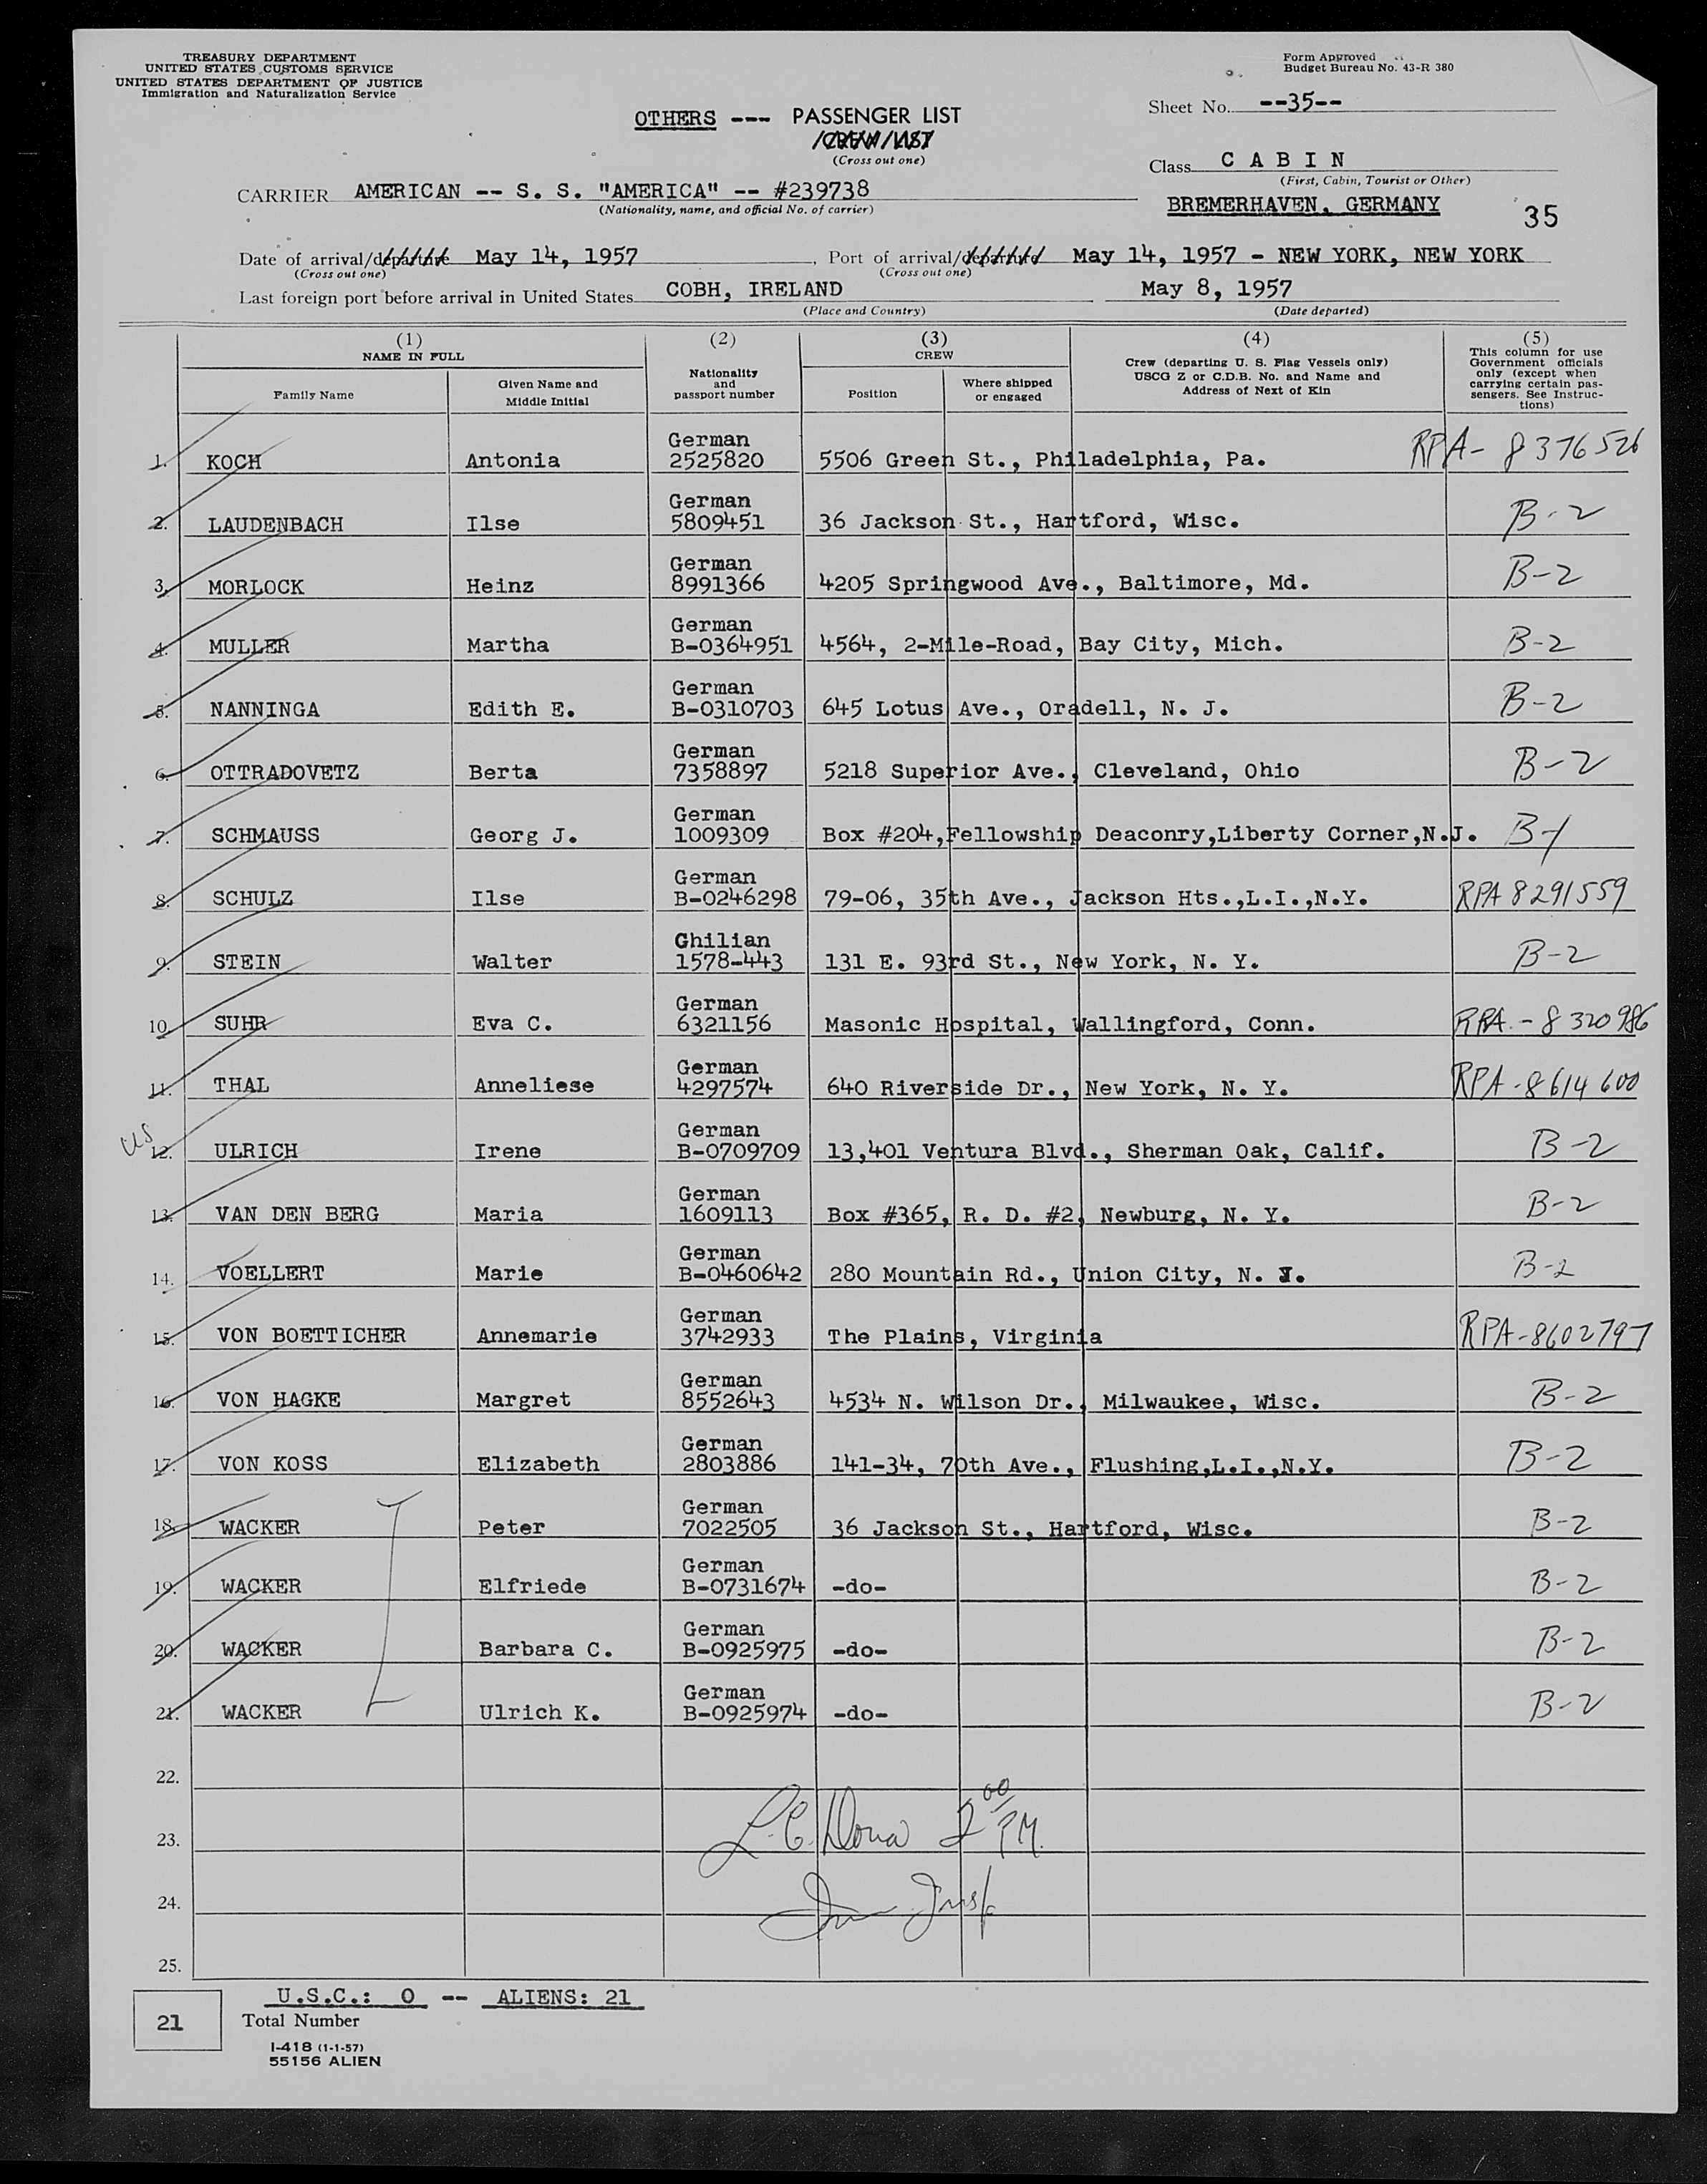 TREASURY DEPARTMENT
UNITED STATES CUSTOMS SERVICE
UNITED STATES DEPARTMENT OF JUSTICE
Immigration and Naturalization Service
Form Approved
Budget Bureau No. 43-R 380
Sheet No. --35--
OTHERS --- PASSENGER LIST
/CREW/LIST
(Cross out one)
Class C A B I N
(First, Cabin, Tourist or Other)
CARRIER AMERICAN -- S. S. "AMERICA" -- #239738
(Nationality, name, and official No. of carrier)
BREMERHAVEN, GERMANY
35
Date of arrival/departure May 14, 1957, Port of arrival/departure May 14, 1957 - NEW YORK, NEW YORK
(Cross out one) (Cross out one)
Last foreign port before arrival in United States COBH, IRELAND May 8, 1957
(Place and Country) (Date departed)
(1) (2) (3) (4) (5)
NAME IN FULL
Family Name
Given Name and
Middle Initial
Nationality
and
passport number
CREW
Position
Where shipped
or engaged
Crew (departing U. S. Flag Vessels only)
USCG Z or C.D.B. No. and Name and
Address of Next of Kin
This column for use
Government officials
only (except when
carrying certain pas-
sengers. See Instruc-
tions)
German
1. KOCH Antonia 2525820 5506 Green St., Philadelphia, Pa. RPA- 8376526
German
2. LAUDENBACH Ilse 5809451 36 Jackson St., Hartford, Wisc. B-2
German
3. MORLOCK Heinz 8991366 4205 Springwood Ave., Baltimore, Md. B-2
German
4. MULLER Martha B-0364951 4564, 2-Mile-Road, Bay City, Mich. B-2
German
5. NANNINGA Edith E. B-0310703 645 Lotus Ave., Oradell, N. J. B-2
German
6. OTTRADOVETZ Berta 7358897 5218 Superior Ave., Cleveland, Ohio B-2
German
7. SCHMAUSS Georg J. 1009309 Box #204,Fellowship Deaconry,Liberty Corner,N.J. B-1
German
8. SCHULZ Ilse B-0246298 79-06, 35th Ave., Jackson Hts.,L.I.,N.Y. RPA 8291559
Ghilian
9. STEIN Walter 1578-443 131 E. 93rd St., New York, N. Y. B-2
German
10. SUHR Eva C. 6321156 Masonic Hospital, Wallingford, Conn. RPA.-8320986
German
11. THAL Anneliese 4297574 640 Riverside Dr., New York, N. Y. RPA-8614600
US
German
12. ULRICH Irene B-0709709 13,401 Ventura Blvd., Sherman Oak, Calif. B-2
German
13. VAN DEN BERG Maria 1609113 Box #365, R. D. #2, Newburg, N. Y. B-2
German
14. VOELLERT Marie B-0460642 280 Mountain Rd., Union City, N. J. B-2
German
15. VON BOETTICHER Annemarie 3742933 The Plains, Virginia RPA-8602797
German
16. VON HAGKE Margret 8552643 4534 N. Wilson Dr., Milwaukee, Wisc. B-2
German
17. VON KOSS Elizabeth 2803886 141-34, 70th Ave., Flushing,L.I.,N.Y. B-2
German
18. WACKER Peter 7022505 36 Jackson St., Hartford, Wisc. B-2
German
19. WACKER Elfriede B-0731674 -do- B-2
German
20. WACKER Barbara C. B-0925975 -do- B-2
German
21. WACKER Ulrich K. B-0925974 -do- B-2
22.
23. 2 00 PM.
24.
25.
U.S.C.: 0 -- ALIENS: 21
21 Total Number
I-418 (1-1-57)
55156 ALIEN